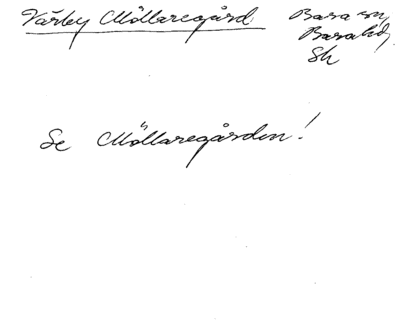 Värby Möllaregård
Bara sn,
Bara hd,
Sk
Se Möllaregården!